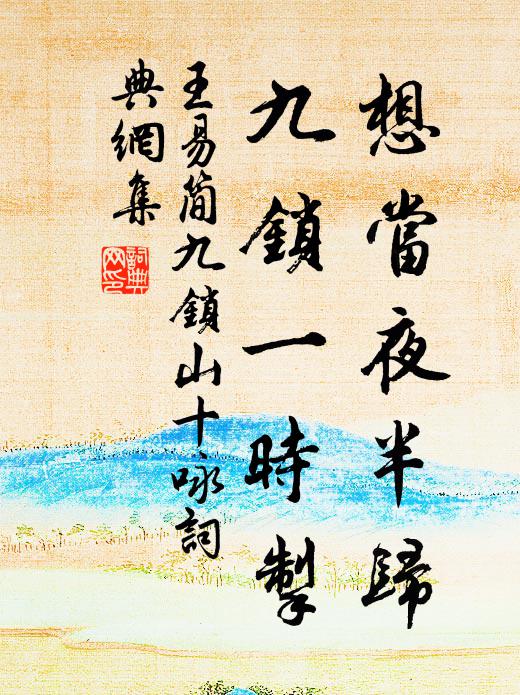 想當夜半歸
九鎖一時掣
王易简九鎖山十咏詞
典網集
詞典网印